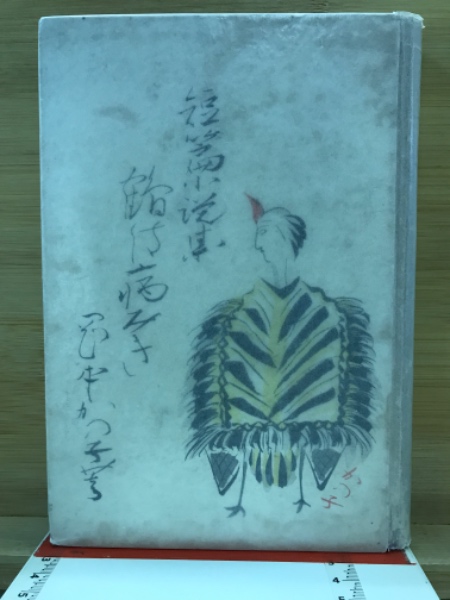 短篇小説集
鶴は病みき
岡本かの子著
かの子